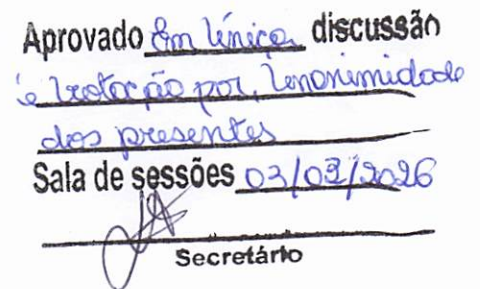 Aprovado Em única discussão
e votação por, unanimidade
dos presentes
Sala de sessões 03/03/2026
Secretário